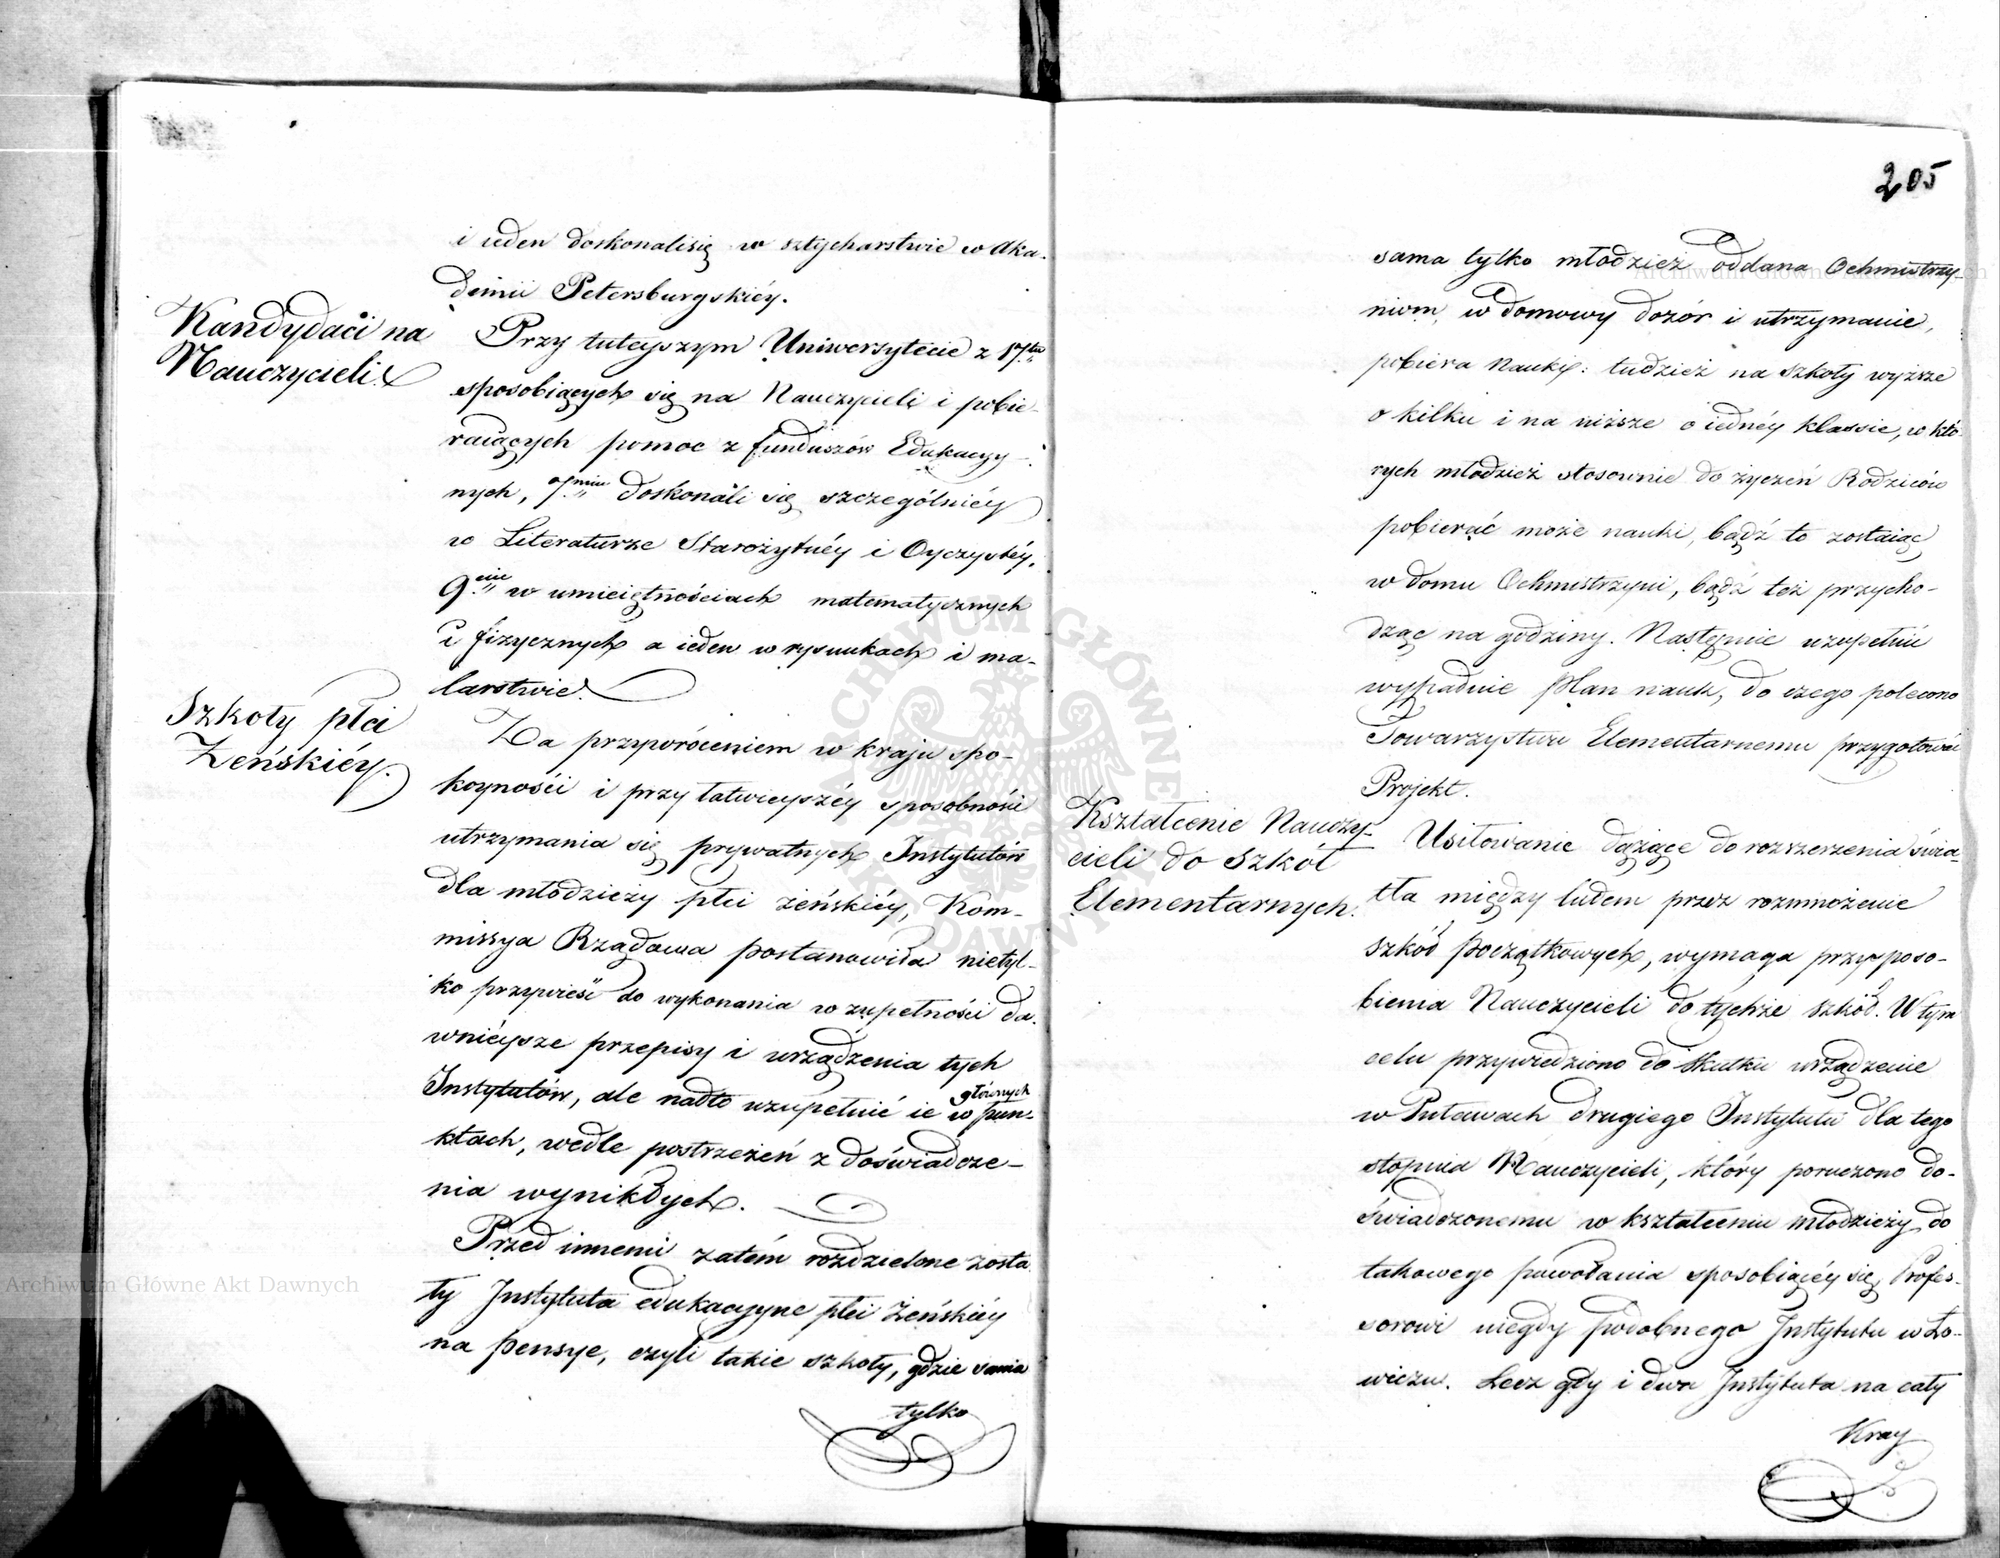 i ieden doskonali się w sztycharstwie w Aka-
demii Petersburgskiéy.
Kandydaci na
Nauczycieli
Przy tuteyszym Uniwersytecie z 17tu
sposobiących się na Nauczycieli i pobie-
raiących pomoc z funduszów Edukacyy-
nych, 7miu doskonali się szczególniéy
w Literaturze Starożytnéy i Oyczystéy,
9ciu w umieiętnościach matematycznych
i fizycznych a ieden w rysunkach i ma-
larstwie.
Szkoły płci
Żeńskiéy.
Za przywróceniem w kraju spo-
koyności i przy łatwieyszéy sposobności
utrzymania się prywatnych Instytutów
dla młodzieży płci żeńskiéy, Kom-
missya Rządowa postanowiła nietyl-
ko przywieść do wykonania w zupełności da-
wniéysze przepisy i urządzenia tych
Instytutów, ale nadto uzupełnić ie w głównych pun-
ktach, wedle postrzeżeń z doświadcze-
nia wynikłych.
Przed innemi zatém rozdzielone zosta-
ły Instytuta edukacyyne płci żeńskiéy
na pensye, czyli takie szkoły, gdzie sama
tylko
205
sama tylko młodzież oddana Ochmistrzy-
niom, w domowy dozór i utrzymanie,
pobiera Nauki: tudzież na szkoły wyższe
o kilku i na niższe o iednéy klassie, w któ-
rych młodzież stosownie do życzeń Rodziców
pobierać może nauki, bądź to zostaiąc
w domu Ochmistrzyni, bądź też przycho-
dząc na godziny. Następnie uzupełnić
wypadnie plan nauk, do czego polecono
Towarzystwu Elementarnemu przygotować
Projekt.
Kształcenie Nauczy-
cieli do szkół
Elementarnych.
Usiłowanie dążące do rozszerzenia świa-
tła między ludem przez rozmnożenie
szkół początkowych, wymaga przysposo-
bienia Nauczycieli do tychże szkół. W tym
celu przywiedziono do skutku urządzenie
w Puławach drugiego Instytutu dla tego
stopnia Nauczycieli, który poruczono do-
świadczonemu w kształceniu młodzieży do
takowego powołania sposobiącéy się, Profes-
sorowi niegdy podobnego Instytutu w Ło-
wiczu. Lecz gdy i dwa Instytuta na cały
Kray
Archiwum Główne Akt Dawnych
Archiwum Główne Akt Dawnych
ARCHIWUM GŁÓWNE AKT DAWNYCH